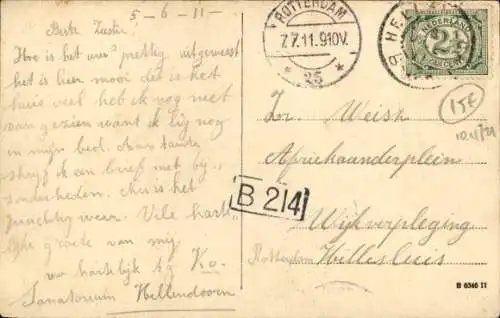 5-6-11-
Beste Zuster!
Hoe is het met prettig uitgeweest
het is hier mooi dat is het
huis veel heb ik nog niet
van gezien want ik lig nog
in mijn bed. Aan tante
schrijf ik een brief met bij-
zonderheden. hier is het
prachtig weer. Vele hart-
lijke groete van mij
Ko.
Sanatorium Hellendoorn
ROTTERDAM
7.7.11.9-10V.
25
NEDERLAND
2½
CENT
Zr. Weish
Afrikaanderplein
B 214
Wijkverpleging
Rotterdam Hillesluis
B 6346 11